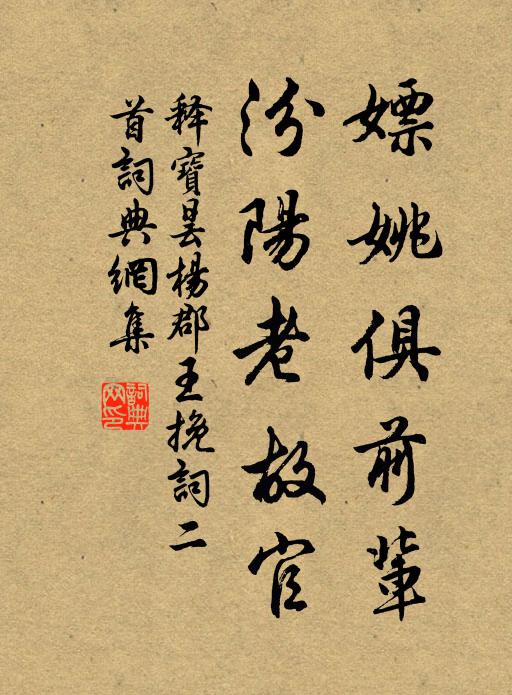 嫖姚俱前輩
汾陽老故官
释寶曇楊郡王挽詞二
首詞典網集
詞典網印